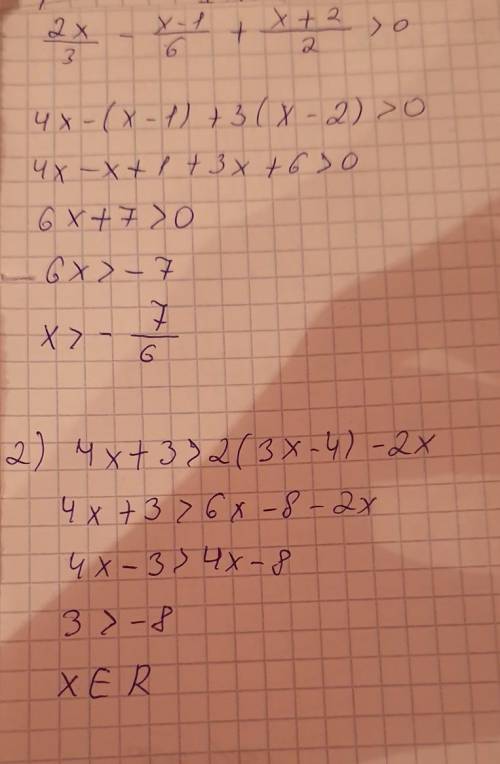 2x/3 - x-1/6 + x+2/2 > 0
4x-(x-1)+3(x-2)>0
4x-x+1+3x+6>0
6x+7>0
6x>-7
x>-7/6
2) 4x+3>2(3x-4)-2x
4x+3>6x-8-2x
4x-3>4x-8
3>-8
x∈R